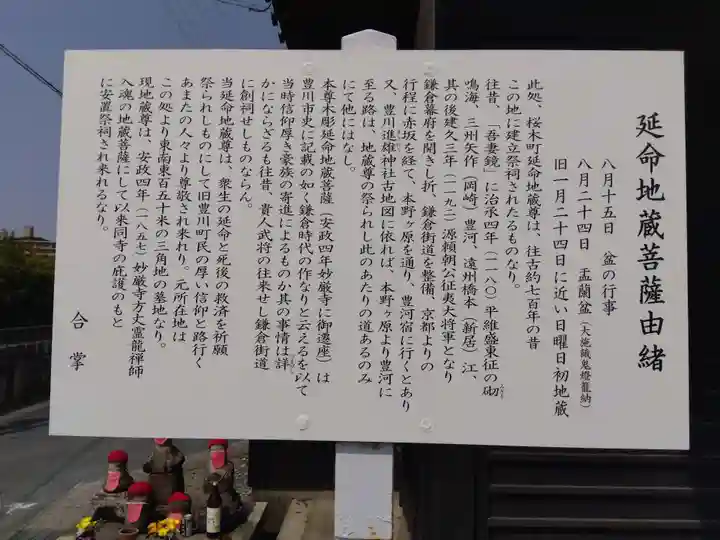 延命地蔵菩薩由緒
八月十五日 盆の行事
八月二十四日 盂蘭盆(大施餓鬼燈籠納)
旧一月二十四日に近い日曜日初地蔵
此処、桜木町延命地蔵尊は、往古約七百年の昔
この地に建立祭祠されたるものなり。
往昔、「吾妻鏡」に治承四年(一一八〇)平維盛東征の砌
鳴海、三州矢作(岡崎)豊河、遠州橋本(新居)江、
其の後建久三年(一一九二)源頼朝公征夷大将軍となり
鎌倉幕府を開きし折、鎌倉街道を整備、京都よりの
行程に赤坂を経て、本野ヶ原を通り、豊河宿に行くとあり
又、豊川進雄神社古地図に依れば、本野ヶ原より豊河に
至る路は、地蔵尊の祭られし此のあたりの道あるのみ
にて他にはなし。
本尊木彫延命地蔵菩薩(安政四年妙厳寺に御遷座)は
豊川市史に記載の如く鎌倉時代の作なりと云えるを以て
当時信仰厚き豪族の寄進によるものか其の事情は詳
かにならざるも往昔、貴人武将の往来せし鎌倉街道
に創祠せしものならん。
当延命地蔵尊は、衆生の延命と死後の救済を祈願
祭られしものにして旧豊川町民の厚い信仰と路行く
あまたの人々より尊敬され来れり。元所在地は
この処より東南東百五十米の三角地の墓地なり。
現地蔵尊は、安政四年(一八五七)妙厳寺方丈霊龍禅師
入魂の地蔵菩薩にして以来同寺の庇護のもと
に安置祭祠され来れるなり。
合掌